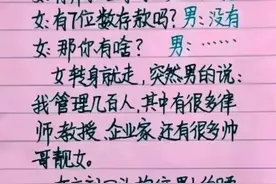 女:有7位数存款吗?男:没有
女:那你有啥? 男:……
女转身就走,突然男的说:
我管理几百人,其中有很多律
师、教授、企业家、还有很多帅
哥靓女。